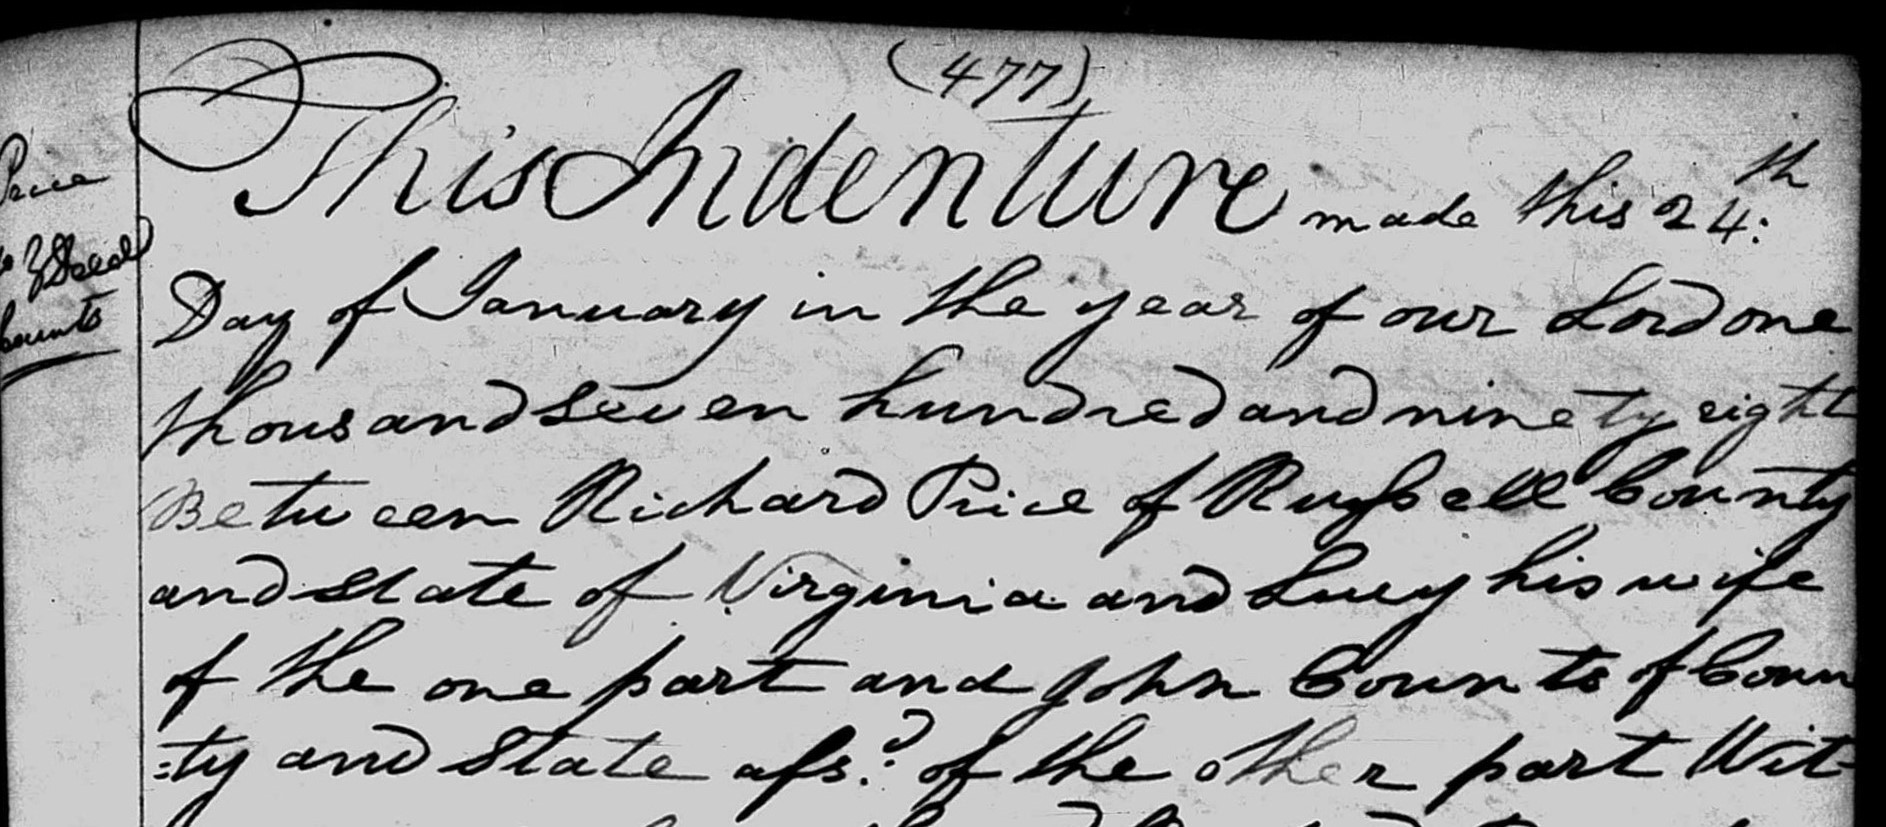 (477)
This Indenture made this 24:th
Day of January in the year of our Lord one
thousand seven hundred and ninety eight
Between Richard Price of Russell County
and State of Virginia and Lucy his wife
of the one part and John Counts of Coun
:ty and State afs.d of the other part Wit-
Price
to } Deed
Counts